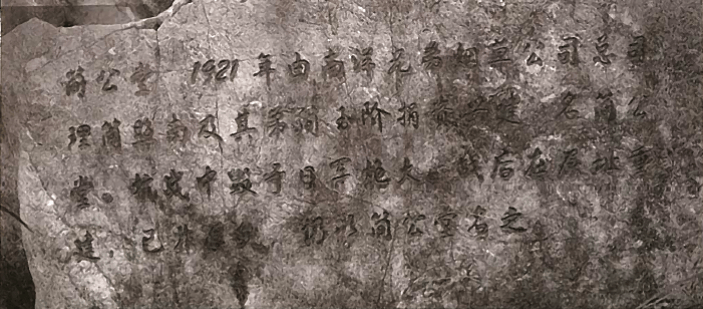 简公堂 1921年由南洋兄弟烟草公司总司
理简照南及其弟简玉阶捐资兴建 名简公
堂。抗战中毁于日军炮火。战后在原址重
建,已非原貌 仍以简公堂名之